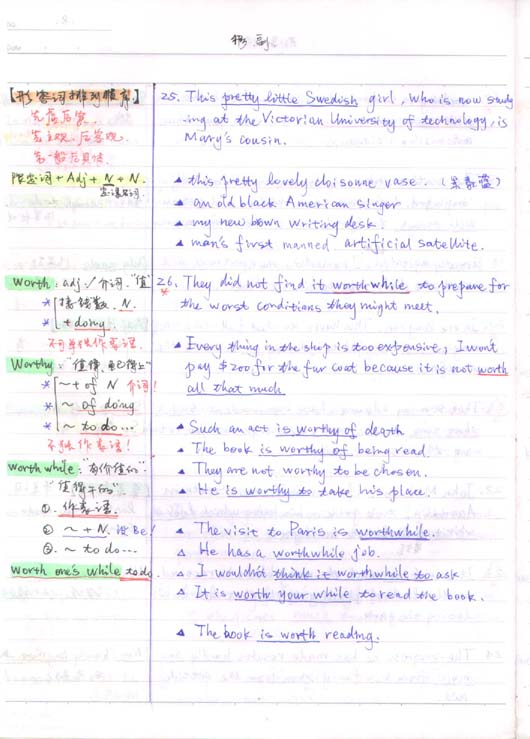 形 副
【形容词排列顺序】
先虚后实,
先主观,后客观.
先一般后具体
限定词 + Adj + N + N.
Worth: adj / 介词. "值"
* 接钱数. N.
* + doing
不可单独作表语.
Worthy: "值得,
* ~ + of N 介词!
* ~ of doing
~ to do...
不能作表语!
Worth while: "有价值的"
"值得干的"
①. 作表语.
② ~ + N. 没 Be!
③. ~ to do...
Worth one's while to do.
25. This pretty little Swedish girl, who is now study
-ing at the Victorian University of technology, is
Mary's cousin.
▲ this pretty lovely cloisonne vase. (景泰蓝)
▲ an old black American singer
▲ my new brown writing desk.
▲ man's first manned artificial satellite.
26. They did not find it worthwhile to prepare for
*
the worst conditions they might meet.
▲ Every thing in the shop is too expensive, I won't
pay $200 for the fur coat because it is not worth
all that much
▲ Such an act is worthy of death
▲ The book is worthy of being read.
▲ They are not worthy to be chosen.
▲ He is worthy to take his place.
▲ The visit to Paris is worthwhile.
△ He has a worthwhile job.
△ I wouldn't think it worthwhile to ask
△ It is worth your while to read the book.
▲ The book is worth reading.